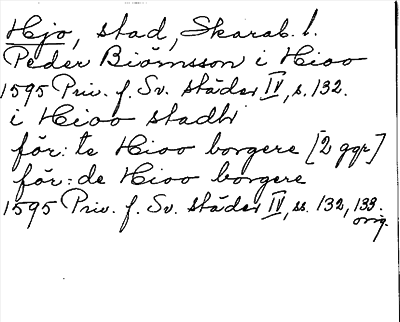 Hjo, stad, Skarab. l.
Peder Biörnsson i Hioo
1595 Priv. f. Sv. städer IV, s. 132.
i Hioo stadh
för:te Hioo borgere [2 ggr]
för:de Hioo borgere
1595 Priv. f. Sv. städer IV, ss. 132, 133.
orig.